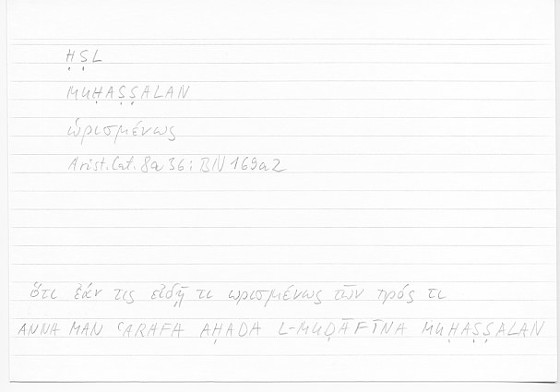 ḤṢL
MUḤAṢṢALAN
ὡρισμένως
Arist. Cat. 8a 36; BN 169a2
ὅτι ἐάν τις εἰδῇ τι ὡρισμένως τῶν πρός τι
ANNA MAN ʿARAFA AḤADA L-MUḌĀFĪNA MUḤAṢṢALAN